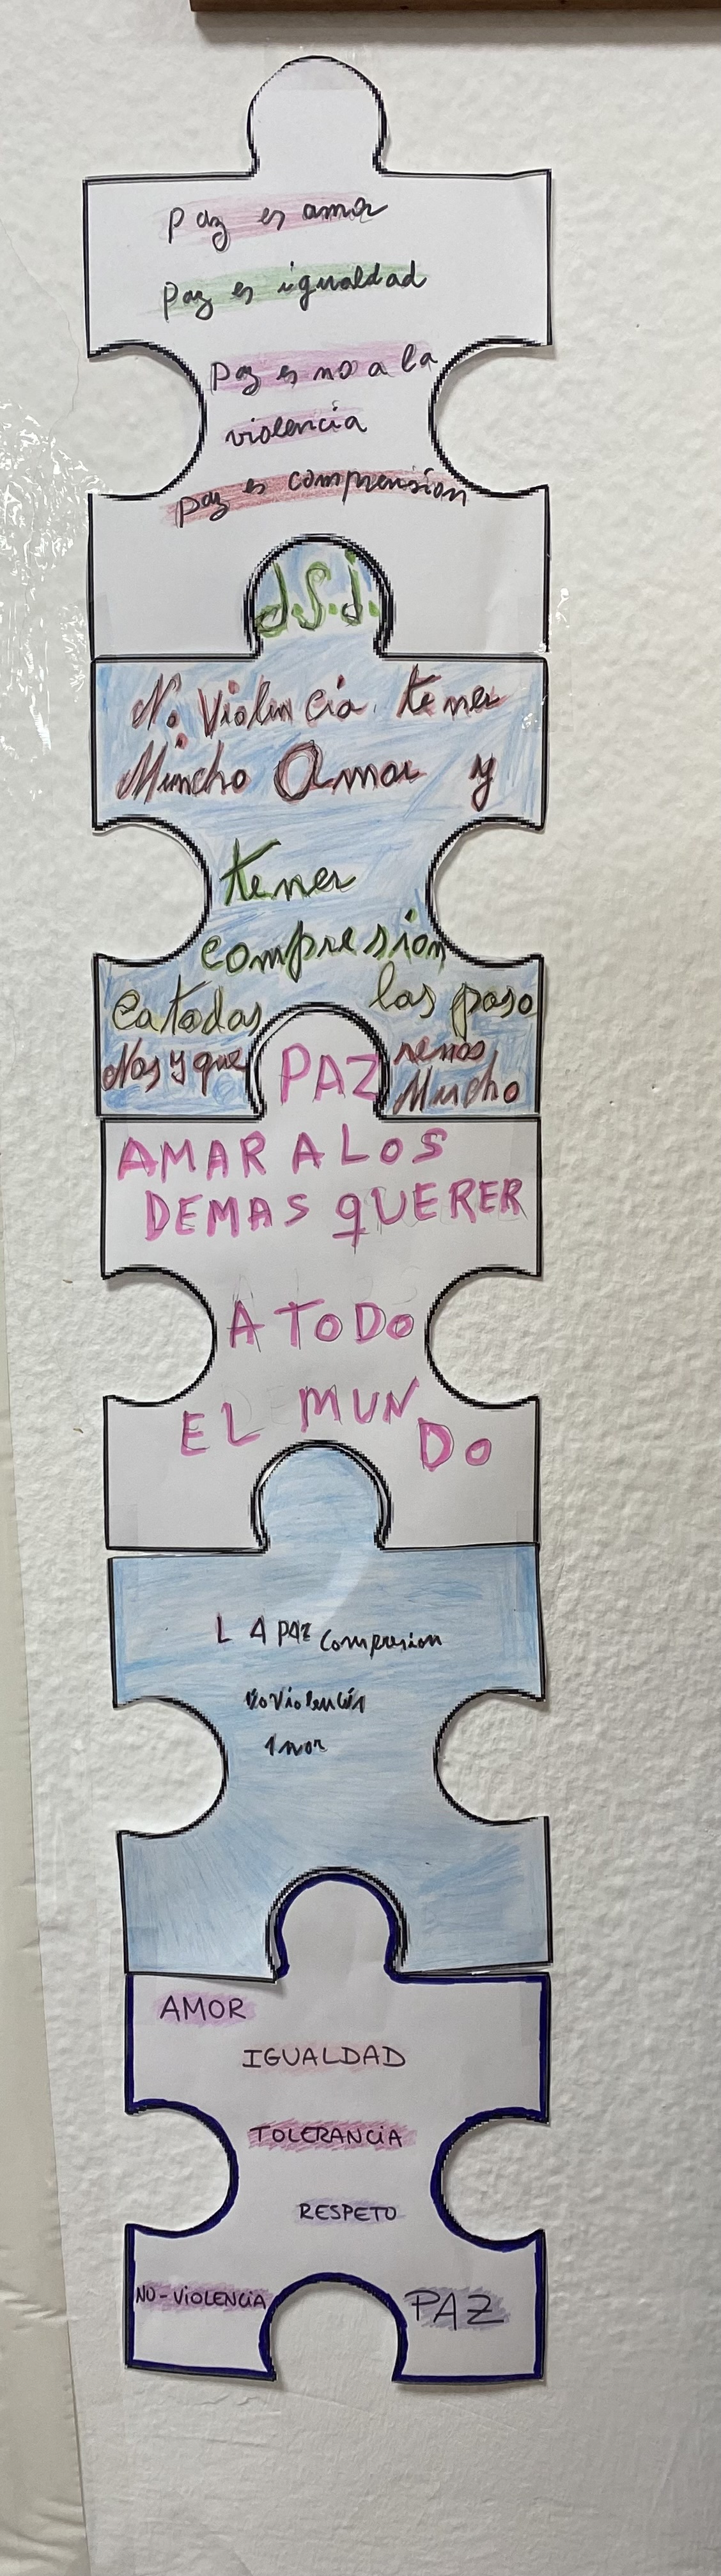 paz es amor
paz es igualdad
paz es no a la
violencia
paz es comprensión
J.S.J.
No Violencia. tener
Muncho Amor y
tener
compresion
a todas las paso
Nos y que renos
Muncho
PAZ
AMAR A LOS
DEMAS QUERER
A TODO
EL MUN
DO
LA PAZ Compresion
No Violencia
Amor
AMOR
IGUALDAD
TOLERANCIA
RESPETO
NO-VIOLENCIA PAZ